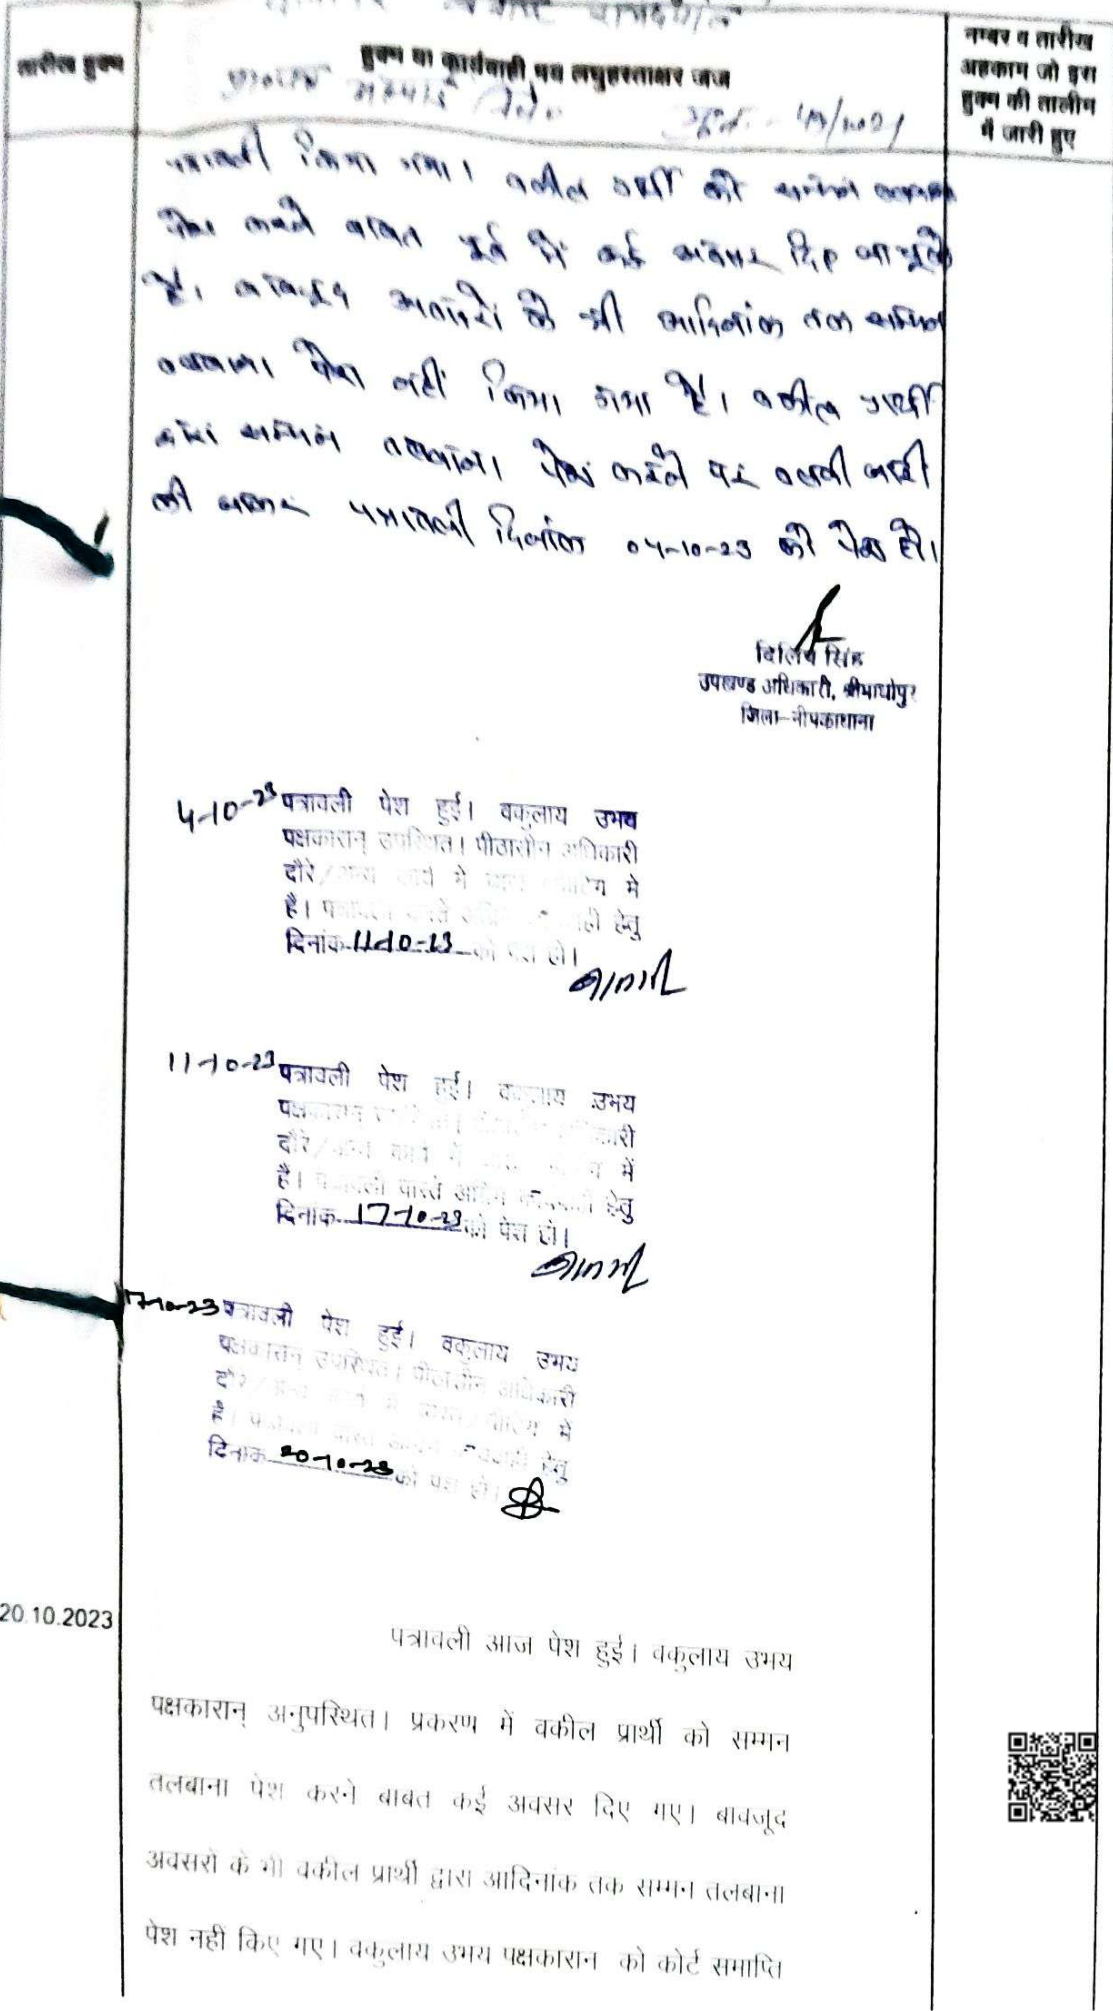 तारीख हुक्म
हुक्म या कार्यवाही मय लघुहस्ताक्षर जज
नम्बर व तारीख
अहकाम जो इस
हुक्म की तालीम
में जारी हुए
किया गया। वकील प्रार्थी को सम्मन तलबाना
पेश करने बाबत पूर्व में कई अवसर दिए जा चुके
है। बावजूद अवसरों के भी आदिनांक तक सम्मन
तलबाना पेश नहीं किया गया है। वकील प्रार्थी
सम्मन तलबाना पेश करने पर तलबी जारी
की जाकर पत्रावली दिनांक 04-10-23 को पेश हो।
दिलिप सिंह
उपखण्ड अधिकारी, श्रीमाधोपुर
जिला-नीमकाथाना
4-10-23 पत्रावली पेश हुई। वकुलाय उभय
पक्षकारान् उपस्थित। पीठासीन अधिकारी
दौरे/अन्य कार्य मे मे
है। हेतु
दिनांक 11-10-23 को पेश हो।
11-10-23 पत्रावली पेश हुई। वकुलाय उभय
पक्षकारान
दौरे/अन्य कार्य में में
है। पत्रावली वास्ते हेतु
दिनांक 17-10-23 को पेश हो।
17-10-23 पत्रावली पेश हुई। वकुलाय उभय
पक्षकारान् उपस्थित। पीठासीन अधिकारी
दौरे/अन्य में
है। हेतु
दिनांक 20-10-23 को पेश हो।
20.10.2023
पत्रावली आज पेश हुई। वकुलाय उभय
पक्षकारान् अनुपस्थित। प्रकरण में वकील प्रार्थी को सम्मन
तलबाना पेश करने बाबत कई अवसर दिए गए। बावजूद
अवसरो के भी वकील प्रार्थी द्वारा आदिनांक तक सम्मन तलबाना
पेश नहीं किए गए। वकुलाय उभय पक्षकारान को कोर्ट समाप्ति